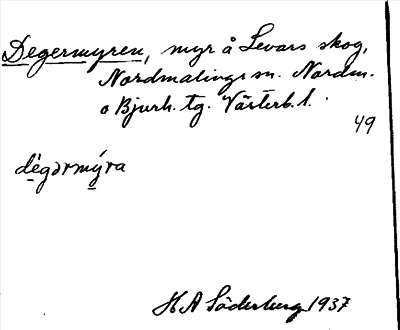 Degermyren, myr å Levars skog,
Nordmalings sn. Nordm.
o Bjurh. tg. Västerb. l.
49
dègərmýra
H A Söderberg 1937